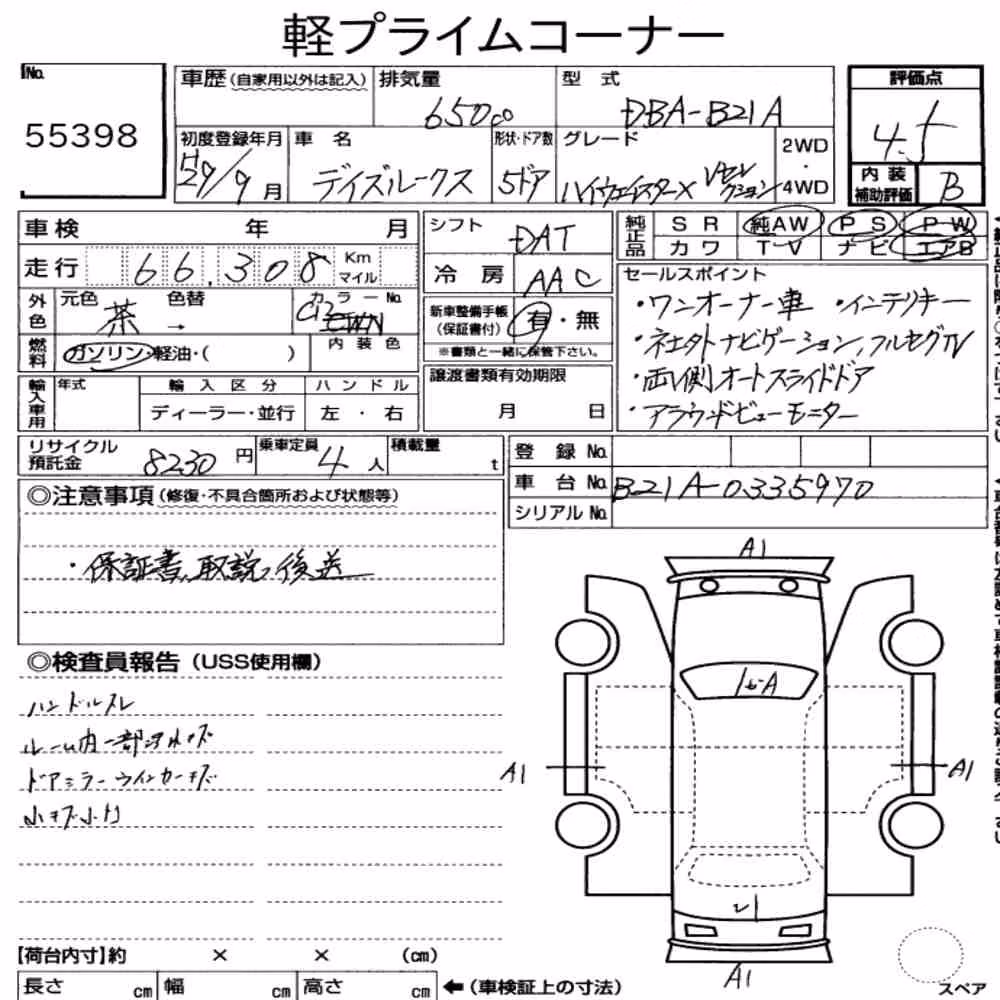 軽プライムコーナー
No. 55398
車歴(自家用以外は記入) 排気量 650cc 型式 DBA-B21A
評価点 4.5
内装補助評価 B
初度登録年月 H29/9月 車名 デイズルークス 形状・ドア数 5ドア グレード ハイウェイスターX Vセレクション 2WD・4WD
車検 年 月
走行 66,308 Km マイル
外色 元色 茶 色替 → カラーNo.
燃料 ガソリン・軽油・( ) 内装色
輸入車用 年式 輸入区分 ディーラー・並行 ハンドル 左・右
リサイクル預託金 8230円 乗車定員 4人 積載量 t
シフト DAT
冷房 AAC
新車整備手帳(保証書付) 有・無
※書類と一緒に保管下さい。
譲渡書類有効期限
月 日
純正品 SR 純AW PS PW
カワ TV ナビ エアB
セールスポイント
・ワンオーナー車 ・インテリキー
・ネェタトナビゲーション,フルセグTV
・両側オートスライドドア
・アラウンドビューモニター
登録No.
車台No. B21A-0335970
シリアルNo.
◎注意事項(修復・不具合箇所および状態等)
・保証書、取説、後送
◎検査員報告(USS使用欄)
ハンドルスレ
ルーム内一部汚れキズ
ドアミラーウインカーキズ
小キズ小凹
A1
A
A1
A1
A1
【荷台内寸】約 × × (cm)
長さ cm 幅 cm 高さ cm ←(車検証上の寸法)
スペア